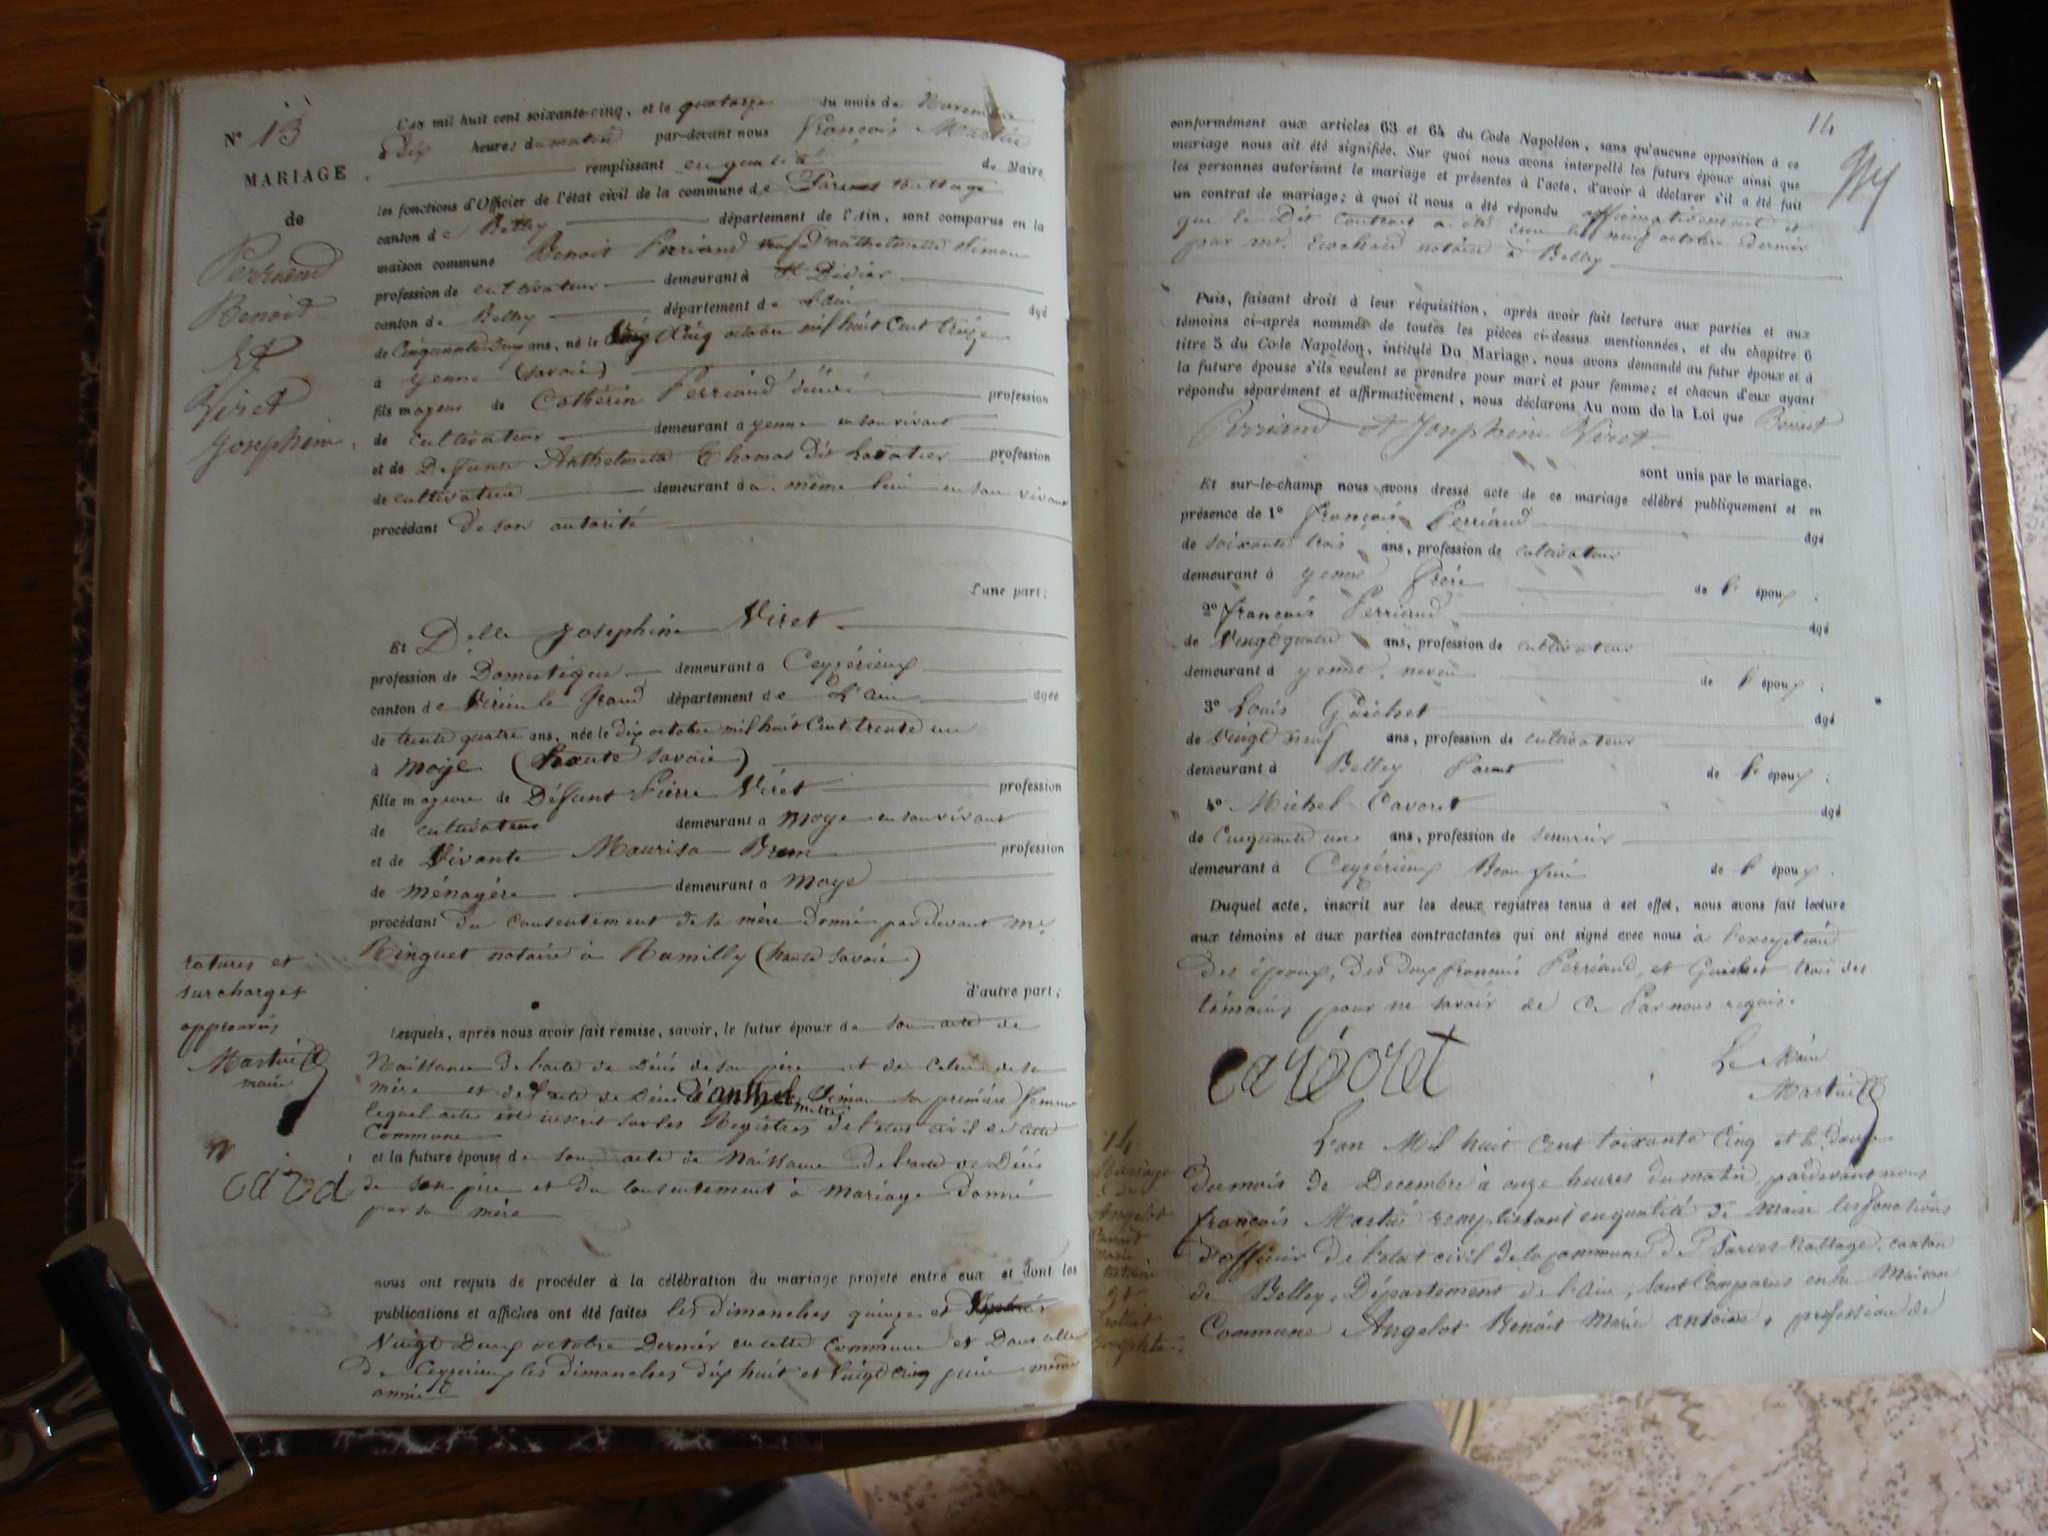 N° 13
MARIAGE
de
Perriand
Benoit
Et
Viret
Josephine
L'an mil huit cent soixante-cinq, et le quatorze du mois de Novembre
à Dix heures du matin par-devant nous françois Martin
remplissant en qualité de Maire
les fonctions d'Officier de l'état civil de la commune de Parves Nattage
canton de Belley département de l'Ain, sont comparus en la
maison commune Benoit Perriand veuf d'anthelmette Simon
profession de cultivateur demeurant à St Didier
canton de Belley département de L'ain âgé
de Cinquante deux ans, né le Vingt Cinq octobre mil huit Cent treize
à Yenne (Savoie)
fils majeur de Cathérin Perriand profession
de cultivateur demeurant à yenne en son vivant
et de Defunte Anthelmette Thomas dit Lavatier profession
de cultivatrice demeurant au même lieu en son vivant
procédant de son autorité
d'une part;
Et Delle Josephine Viret
profession de Domestique demeurant à Ceyzérieux
canton de Virieu le Grand département de L'ain âgée
de trente quatre ans, née le dix octobre mil huit Cent trente un
à Moye (haute Savoie)
fille majeure de Défunt Pierre Viret profession
de cultivateur demeurant à Moye en son vivant
et de Vivante Maurisa profession
de ménagère demeurant à Moye
procédant du consentement de la mère donné pardevant Me
Ringuet notaire à Rumilly (haute Savoie)
ratures et
surcharges
approuvés
maire
d'autre part;
Lesquels, après nous avoir fait remise, savoir, le futur époux de son acte de
Naissance de l'acte de Décès de son père et de celui de sa
mère et de l'acte de Décès d'anthelmette Simon sa première femme
lequel acte est inscrit sur les Registres de l'état civil de cette
Commune
et la future épouse de son acte de Naissance de l'acte de Décès
de son père et du consentement à mariage donné
par sa mère
nous ont requis de procéder à la célébration du mariage projeté entre eux et dont les
publications et affiches ont été faites les dimanches quinze et
Vingt Deux octobre Dernier en cette commune et Dans celle
de Ceyzérieux les dimanches dix huit et vingt cinq juin même
année
14
conformément aux articles 63 et 64 du Code Napoléon, sans qu'aucune opposition à ce
mariage nous ait été signifiée. Sur quoi nous avons interpellé les futurs époux ainsi que
les personnes autorisant le mariage et présentes à l'acte, d'avoir à déclarer s'il a été fait
un contrat de mariage; à quoi il nous a été répondu affirmativement et
que le Dit Contrat a été reçu le neuf octobre dernier
par Me notaire à Belley
Puis, faisant droit à leur réquisition, après avoir fait lecture aux parties et aux
témoins ci-après nommés de toutes les pièces ci-dessus mentionnées, et du chapitre 6
titre 5 du Code Napoléon, intitulé Du Mariage, nous avons demandé au futur époux et à
la future épouse s'ils veulent se prendre pour mari et pour femme; et chacun d'eux ayant
répondu séparément et affirmativement, nous déclarons Au nom de la Loi que Benoit
Perriand et Josephine Viret
sont unis par le mariage.
Et sur-le-champ nous avons dressé acte de ce mariage célébré publiquement et en
présence de 1° françois Perriand âgé
de soixante trois ans, profession de cultivateur
demeurant à Yenne frère de l' époux;
2° françois Perriand âgé
de Vingt quatre ans, profession de cultivateur
demeurant à Yenne, neveu de l' époux;
3° Louis Guichet âgé
de Vingt neuf ans, profession de cultivateur
demeurant à Belley Parent de l' époux;
4° Michel Cavoret âgé
de Cinquante une ans, profession de serrurier
demeurant à Ceyzérieux Beau frère de l' époux.
Duquel acte, inscrit sur les deux registres tenus à cet effet, nous avons fait lecture
aux témoins et aux parties contractantes qui ont signé avec nous à l'exception
des époux, des deux françois Perriand, et Guichet trois des
témoins pour ne savoir de ce Par nous requis.
Le Maire
14
Mariage
de
Angelot
Benoit
Marie
antoine
Et
L'an Mil huit cent soixante Cinq et le Douze
du mois de Decembre à onze heures du matin, pardevant nous
françois remplissant en qualité de Maire les fonctions
d'officier de l'état civil de la commune de Parves Nattage, canton
de Belley, Département de l'Ain, sont Comparus en la Maison
Commune Angelot Benoit Marie antoine, profession de